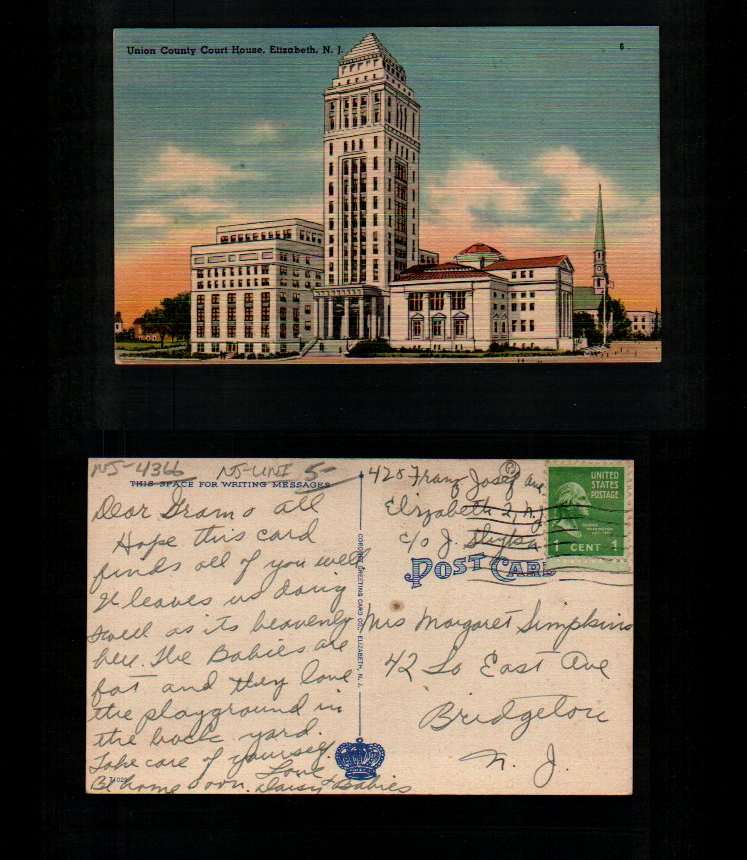 Union County Court House, Elizabeth, N. J.
6
NJ-4366 NJ-UNI 5-
THIS SPACE FOR WRITING MESSAGES
Dear Gram & all
Hope this card
finds all of you well
It leaves us doing
swell as its heavenly
here. The Babies are
fat and they love
the playground in
the back yard.
Take care of yourself
Be home soon. Love
Daisy & Babies
425 Franz Josef Ave.
Elizabeth 2, N.J.
c/o J.
UNITED
STATES
POSTAGE
1 CENT 1
POST CARD
Mrs Margaret Simpkins
42 So East Ave
Bridgeton
N. J.
GREETING CARD CO., ELIZABETH, N. J.